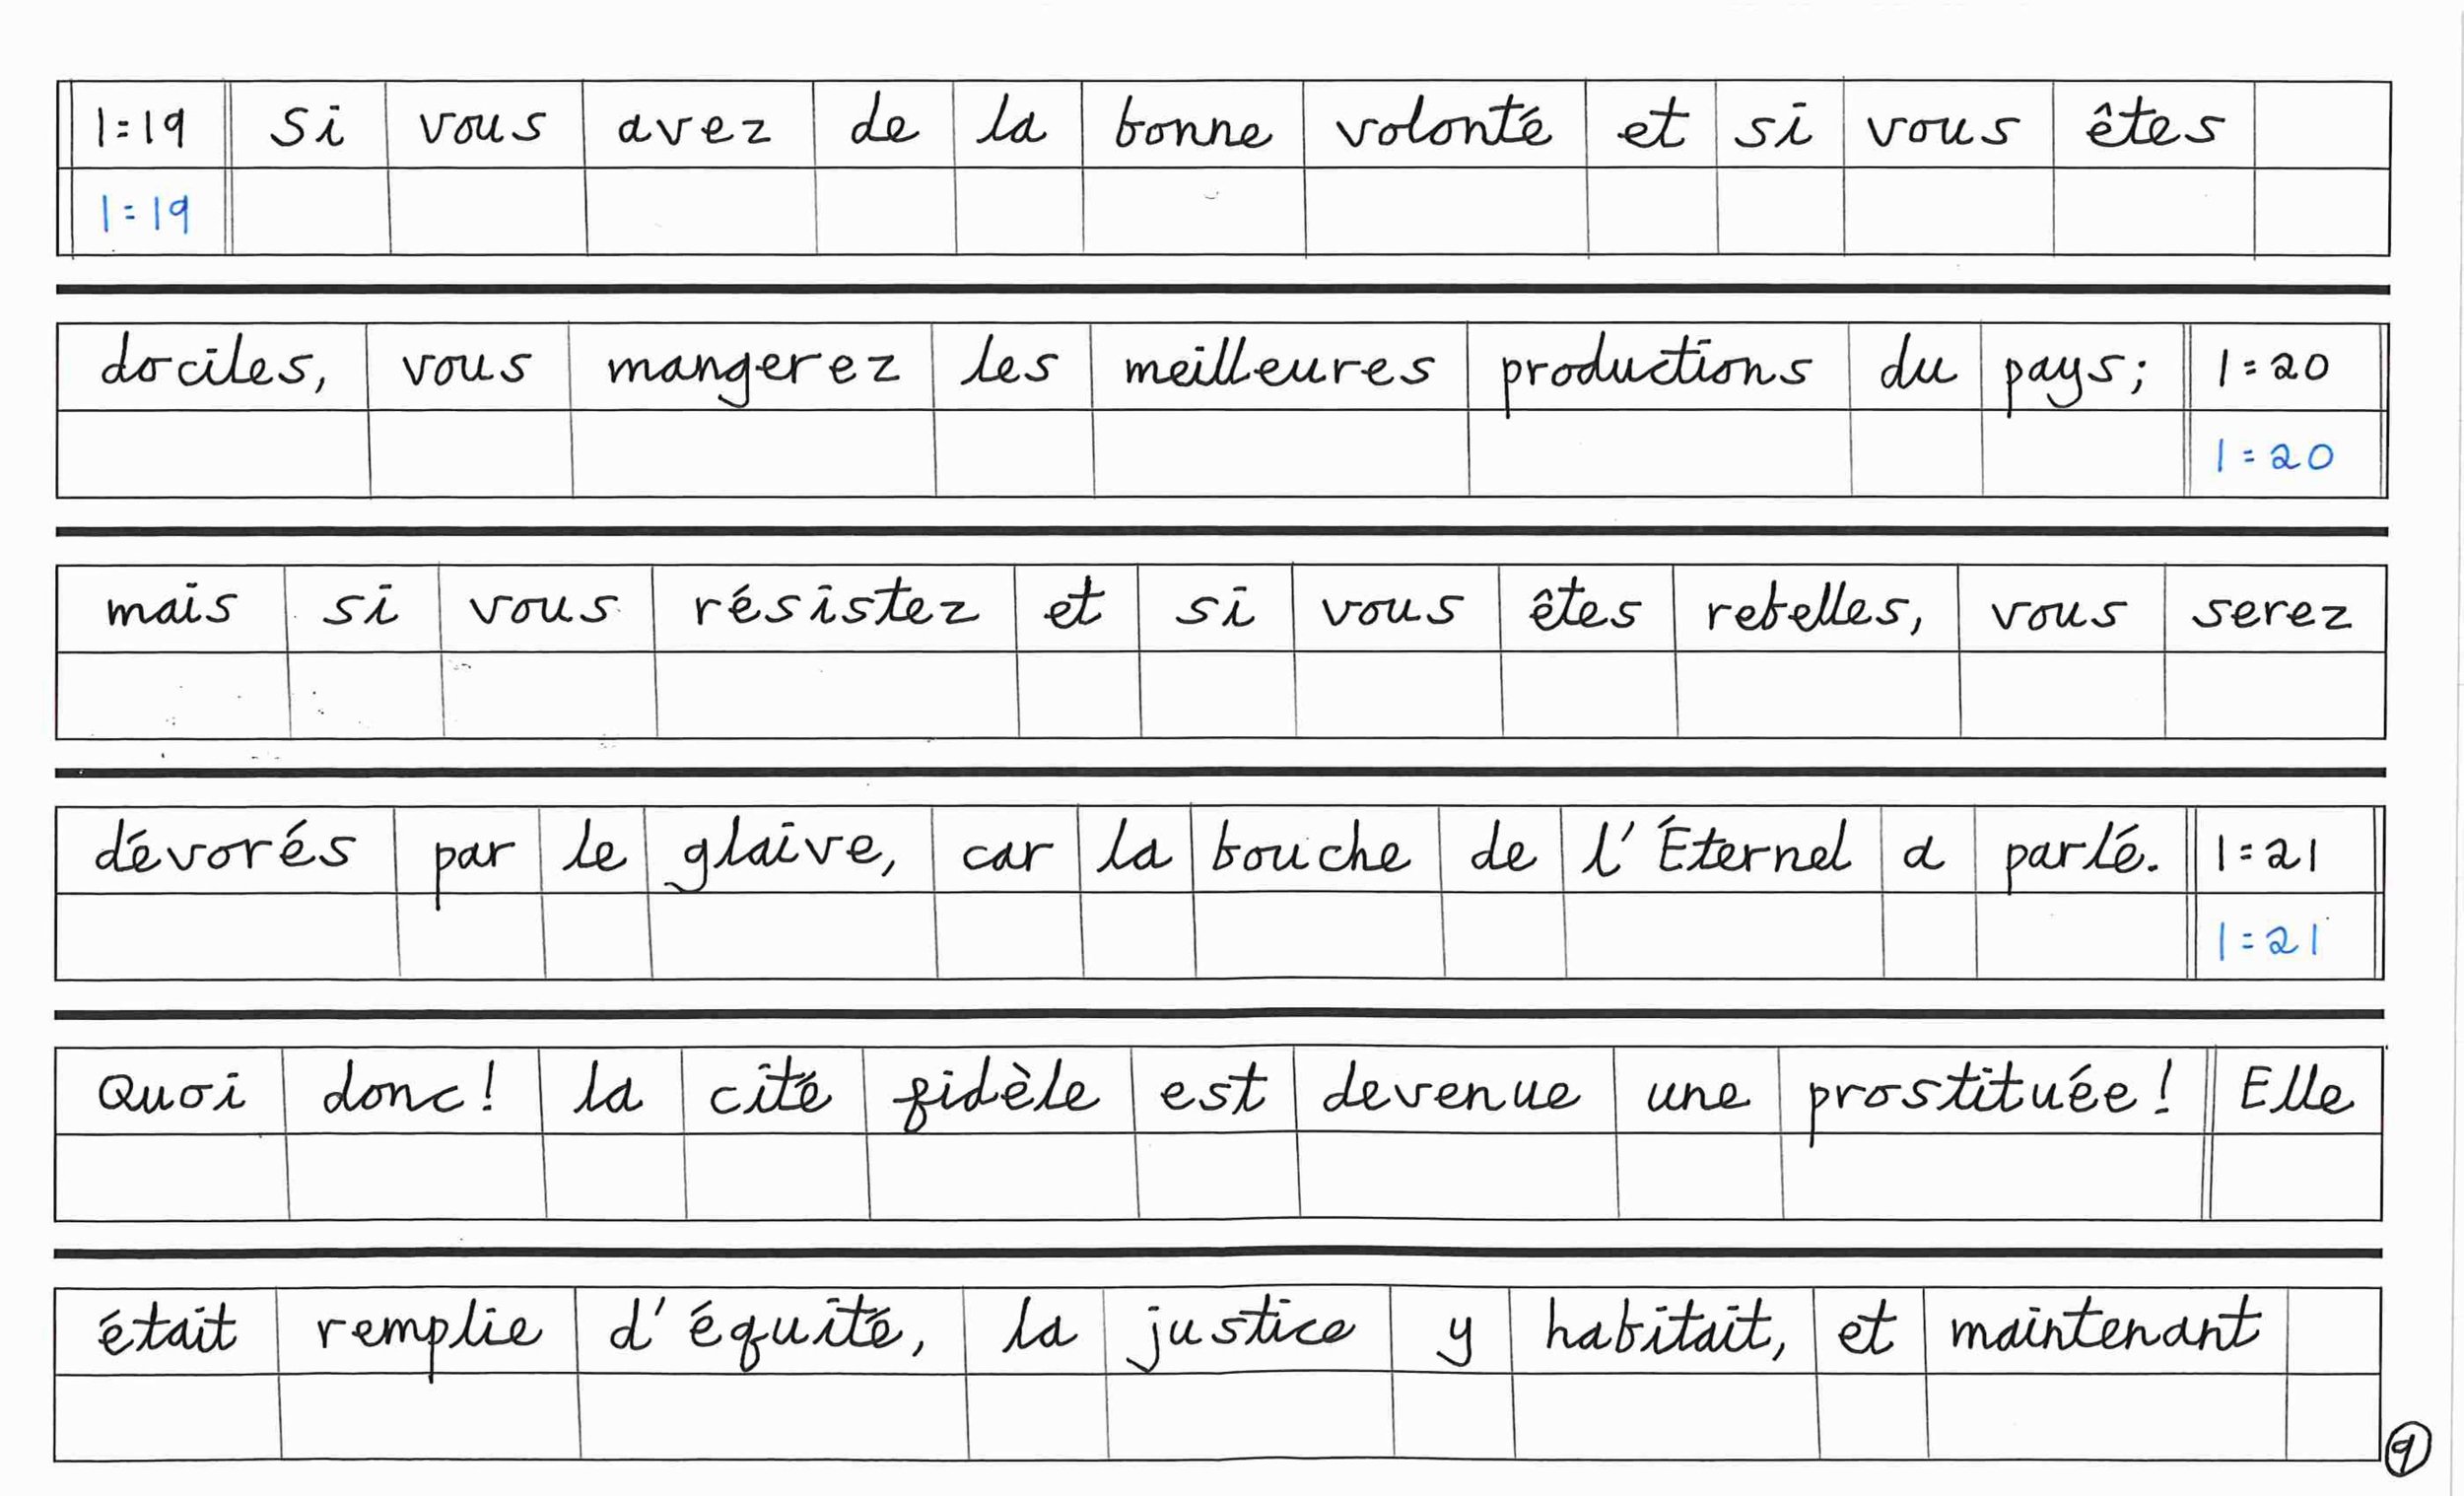 1:19 Si vous avez de la bonne volonté et si vous êtes
1:19
dociles, vous mangerez les meilleures productions du pays; 1:20
1:20
mais si vous résistez et si vous êtes rebelles, vous serez
dévorés par le glaive, car la bouche de l'Éternel a parlé. 1:21
1:21
Quoi donc! la cité fidèle est devenue une prostituée! Elle
était remplie d'équité, la justice y habitait, et maintenant
9